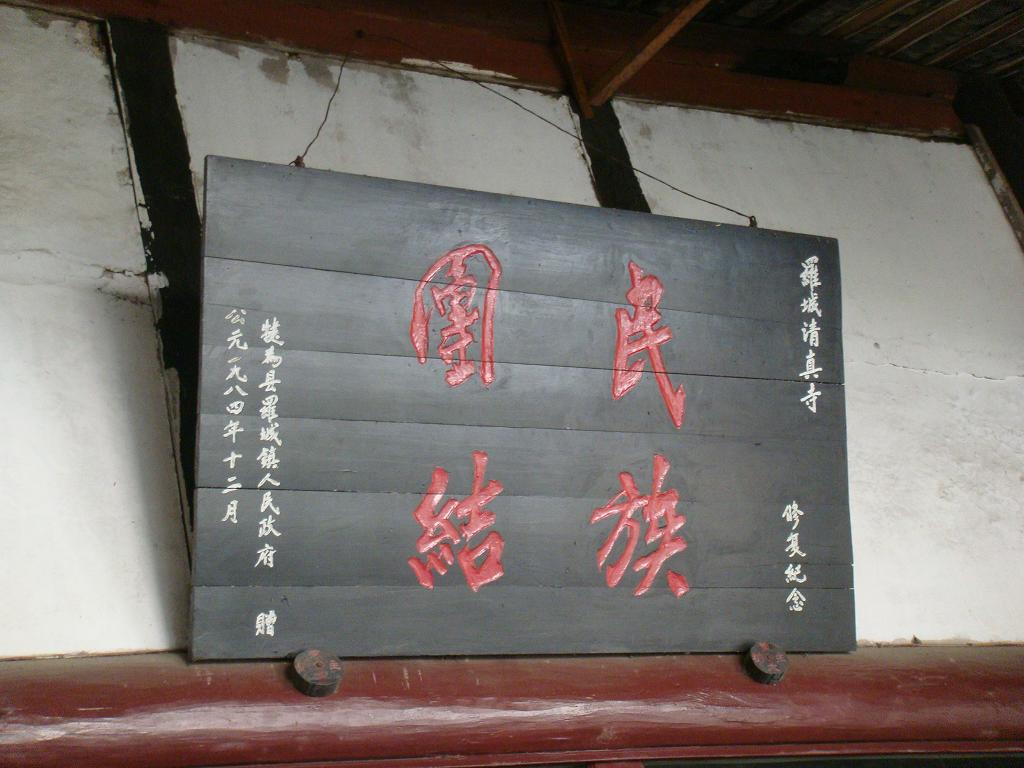 羅城清真寺
修复紀念
民族
團結
犍為县羅城鎮人民政府 贈
公元一九八四年十二月